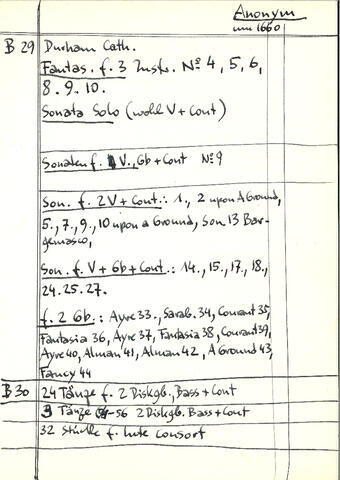 Anonym
um 1660
B 29 Durham Cath.
Fantas. f. 3 Instr. No 4, 5, 6,
8. 9. 10.
Sonata Solo (wohl V + Cont)
Sonaten f. V., Gb + Cont No 9
Son. f. 2 V + Cont.: 1., 2 upon A Ground,
5., 7., 9., 10 upon a Ground, Son 13 Bar-
gemasco,
Son. f. V + Gb + Cont.: 14., 15., 17., 18.,
24. 25. 27.
f. 2 Gb.: Ayre 33., Sarab. 34, Courant 35,
Fantasia 36, Ayre 37, Fantasia 38, Courant 39,
Ayre 40, Alman 41, Alman 42, A Ground 43,
Fancy 44
B 30 24 Tänze f. 2 Diskgb., Bass + Cont
3 Tänze 54-56 2 Diskgb. Bass + Cont
32 Stücke f. lute consort